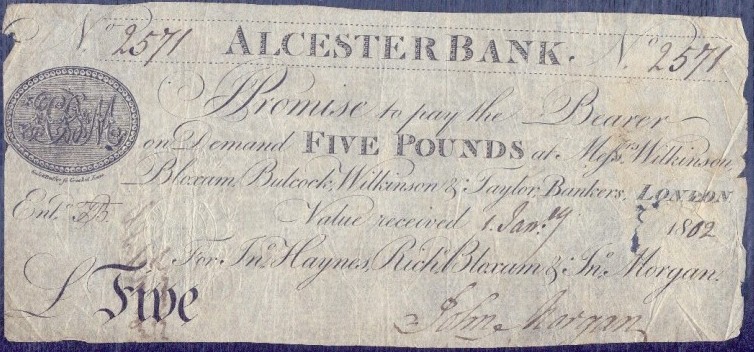 No 2571 ALCESTER BANK. No 2571
I Promise to pay the Bearer
on Demand FIVE POUNDS at Messrs Wilkinson,
Bloxam, Bulcock, Wilkinson & Taylor, Bankers, LONDON
Value received 1 Jany 1802
Entd
For Jno Haynes, Richd Bloxam & Jno Morgan.
£ Five
John Morgan